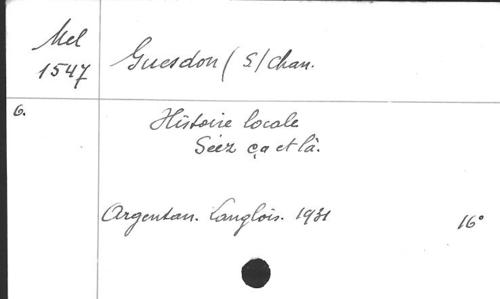 Mel
1547
Guesdon (S/Chan.
6.
Histoire locale
Séez ça et là.
Argentan. Langlois. 1931
16°